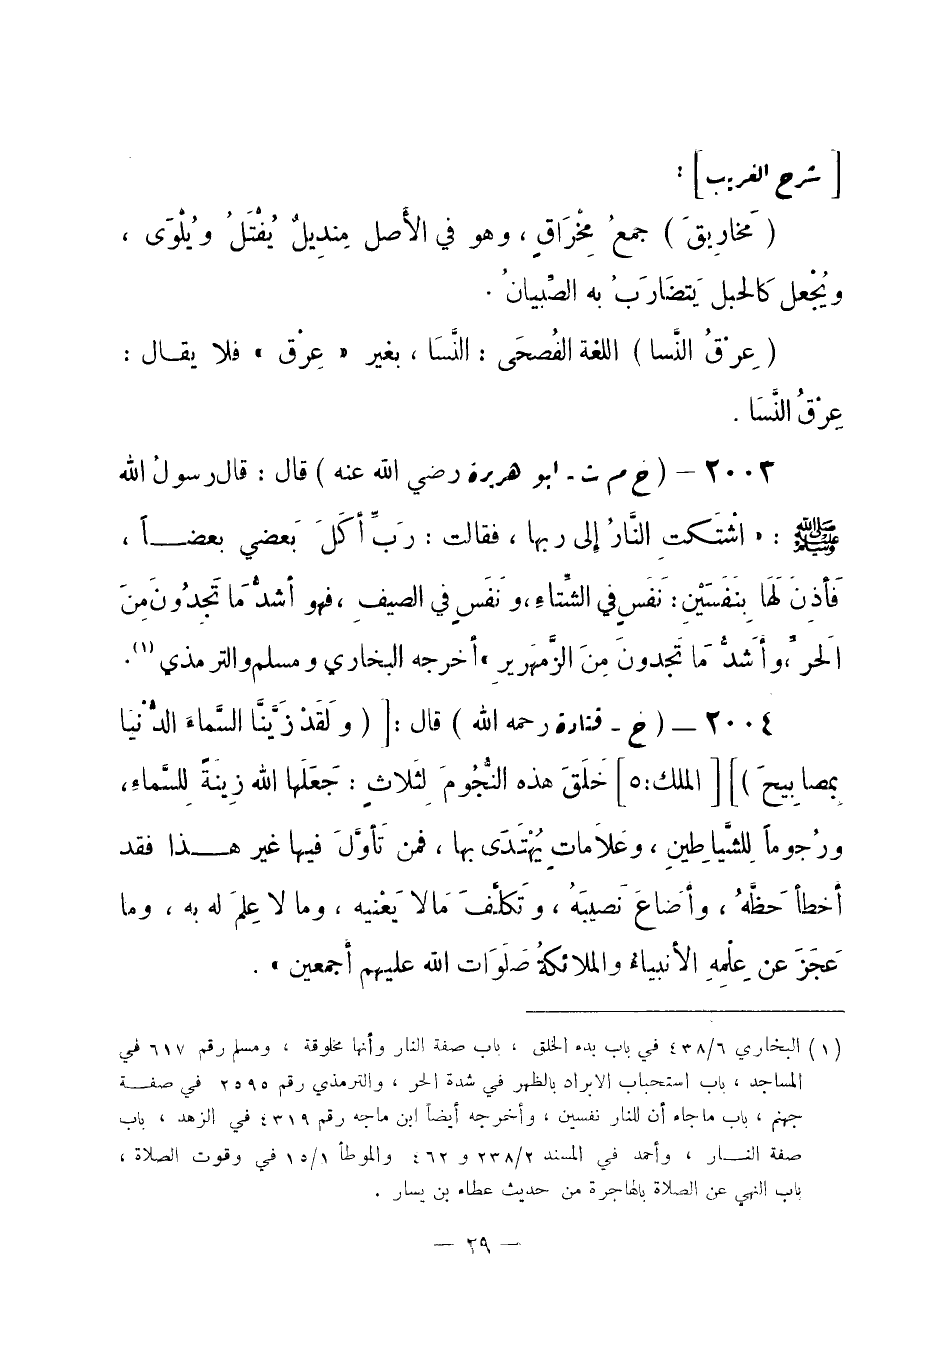 [ شرح الغريب ] :
( مَخاريقَ ) جمعُ مِخْرَاقٍ ، وهو في الأَصل مِنديلٌ يُفْتَلُ ويُلْوَى ،
ويُجْعل كالحبل يَتضَارَبُ به الصِّبيانُ .
( عِرْقُ النَّسا ) اللغة الفُصحَى : النَّسَا ، بغير « عِرْق » فلا يقال :
عِرْقُ النَّسَا .
٢٠٠٣ – ( خ م ت - ابو هريرة رضي الله عنه ) قال : قال رسولُ الله
ﷺ : « اشْتَكتِ النَّارُ إلى ربها ، فقالت : رَبِّ أكَلَ بَعضي بعضاً ،
فَأذِنَ لَهَا بِنَفَسَيْنِ : نَفَسٍ في الشِّتاءِ ، ونَفَسٍ في الصيفِ ، فهو أشدُّ مَا تَجدُونَ مِنَ
الَحرِّ ، وأَشدُّ مَا تَجدونَ مِنَ الزَّمهَريرِ » أخرجه البخاري ومسلم والترمذي (١) .
٢٠٠٤ – ( خ - قتادة رحمه الله ) قال : [ ( ولَقَدْ زَيَّنَّا السَّماءَ الدُّنْيَا
بِمصابيحَ ) ] [ الملك : ٥ ] خَلَقَ هذه النُّجُومَ لِثَلاثٍ : جَعَلَها الله زِينَةً لِلسَّماءِ ،
ورُجوماً لِلشَّياطينِ ، وعَلاَماتٍ يُهْتَدَى بها ، فمن تَأوَّلَ فيها غير هذا فقد
أخطأ حَظَّهُ ، وأضَاعَ نَصيبَهُ ، وتَكلَّفَ مَالا يَعْنيه ، وما لا عِلمَ له به ، وما
عَجَزَ عن عِلْمِهِ الأنبياءُ والملائكةُ صَلَوَات الله عليهم أجمعين » .
(١) البخاري ٤٣٨/٦ في باب بدء الخلق ، باب صفة النار وأنها مخلوقة ، ومسلم رقم ٦١٧ في
المساجد ، باب استحباب الابراد بالظهر في شدة الحر ، والترمذي رقم ٢٥٩٥ في صفة
جهنم ، باب ماجاء أن للنار نفسين ، وأخرجه أيضاً ابن ماجه رقم ٤٣١٩ في الزهد ، باب
صفة النار ، وأحمد في المسند ٢٣٨/٢ و ٤٦٢ والموطأ ١٥/١ في وقوت الصلاة ،
باب النهي عن الصلاة بالهاجرة من حديث عطاء بن يسار .
— ٢٩ —